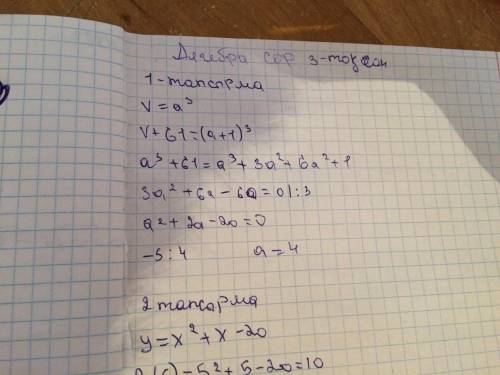 Алгебра сор 3-тоқсан
1-тапсырма
V=a³
V+61=(a+1)³
a³+61=a³+3a²+6a²+1
3a²+6a-60=0|:3
a²+2a-20=0
-5;4 a=4
2 тапсырма
y=x²+x-20
-5²+5-20=10